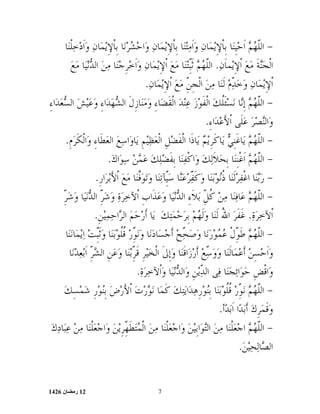 - اَللّٰهُمَّ اَحْيِنَا بِاْلإِيْمَانِ وَاَمِتْنَا بِاْلإِيْمَانِ وَاحْشُرْنَا بِاْلإِيْمَانِ وَاَدْخِلْنَا
الْجَنَّةَ مَعَ اْلإِيْمَانِ. اَللّٰهُمَّ ثَبِّتْنَا مَعَ اْلإِيْمَانِ وَاَخْرِجْنَا مِنَ الدُّنْيَا مَعَ
اْلإِيْمَانِ وَخَدِّمْ لَنَا مِنَ الْجِنِّ مَعَ اْلإِيْمَانِ.
- اَللّٰهُمَّ إِنَّا نَسْئَلُكَ الْفَوْزَ عِنْدَ الْقَضَاءِ وَمَنَازِلَ الشُّهَدَاءِ وَعَيْشَ السُّعَدَاءِ
وَالنَّصْرَ عَلَى اْلأَعْدَاءِ.
- اَللّٰهُمَّ يَاغَنِيُّ يَاكَرِيْمُ يَاذَا الْفَضْلِ الْعَظِيْمِ يَاوَاسِعَ الْعَطَاءِ وَالْكَرَمِ.
- اَللّٰهُمَّ اَغْنِنَا بِحَلاَلِكَ وَاكْفِنَا بِفَضْلِكَ عَمَّنْ سِوَاكَ.
- رَبَّنَا اغْفِرْلَنَا ذُنُوْبَنَا وَكَفِّرْعَنَّا سَيِّآتِنَا وَتَوَفَّنَا مَعَ اْلأَبْرَارِ.
- اَللّٰهُمَّ عَافِنَا مِنْ كُلِّ بَلاَءِ الدُّنْيَا وَعَذَابِ اْلآخِرَةِ وَشَرِّ الدُّنْيَا وَشَرِّ
اْلآخِرَةِ. غَفَرَ اللهُ لَنَا وَلَهُمْ بِرَحْمَتِكَ يَا أَرْحَمَ الرَّاحِمِيْنَ.
- اَللّٰهُمَّ طَوِّلْ عُمُوْرَنَا وَصَحِّحْ أَجْسَادَنَا وَنَوِّرْ قُلُوْبَنَا وَثَبِّتْ إِيْمَانَنَا
وَاَحْسِنْ أَعْمَالَنَا وَوَسِّعْ أَرْزَاقَنَا وَإِلَى الْخَيْرِ قَرِّبْنَا وَعَنِ الشَّرِّ اَبْعِدْنَا
وَاقْضِ حَوَائِجَنَا فِى الدِّيْنِ وَالدُّنْيَا وَاْلآخِرَةِ.
- اَللّٰهُمَّ نَوِّرْ قُلُوْبَنَا بِنُوْرِهِدَايَتِكَ كَمَا نَوَّرْتَ اْلأَرْضَ بِنُوْرِ شَمْسِكَ
وَقَمَرِكَ أَبَدًا اَبَدًا.
- اَللّٰهُمَّ اجْعَلْنَا مِنَ التَّوَابِيْنَ وَاجْعَلْنَا مِنَ الْمُتَطَهِّرِيْنَ وَاجْعَلْنَا مِنْ عِبَادِكَ
الصَّالِحِيْنَ.
12 رمضان 1426
7